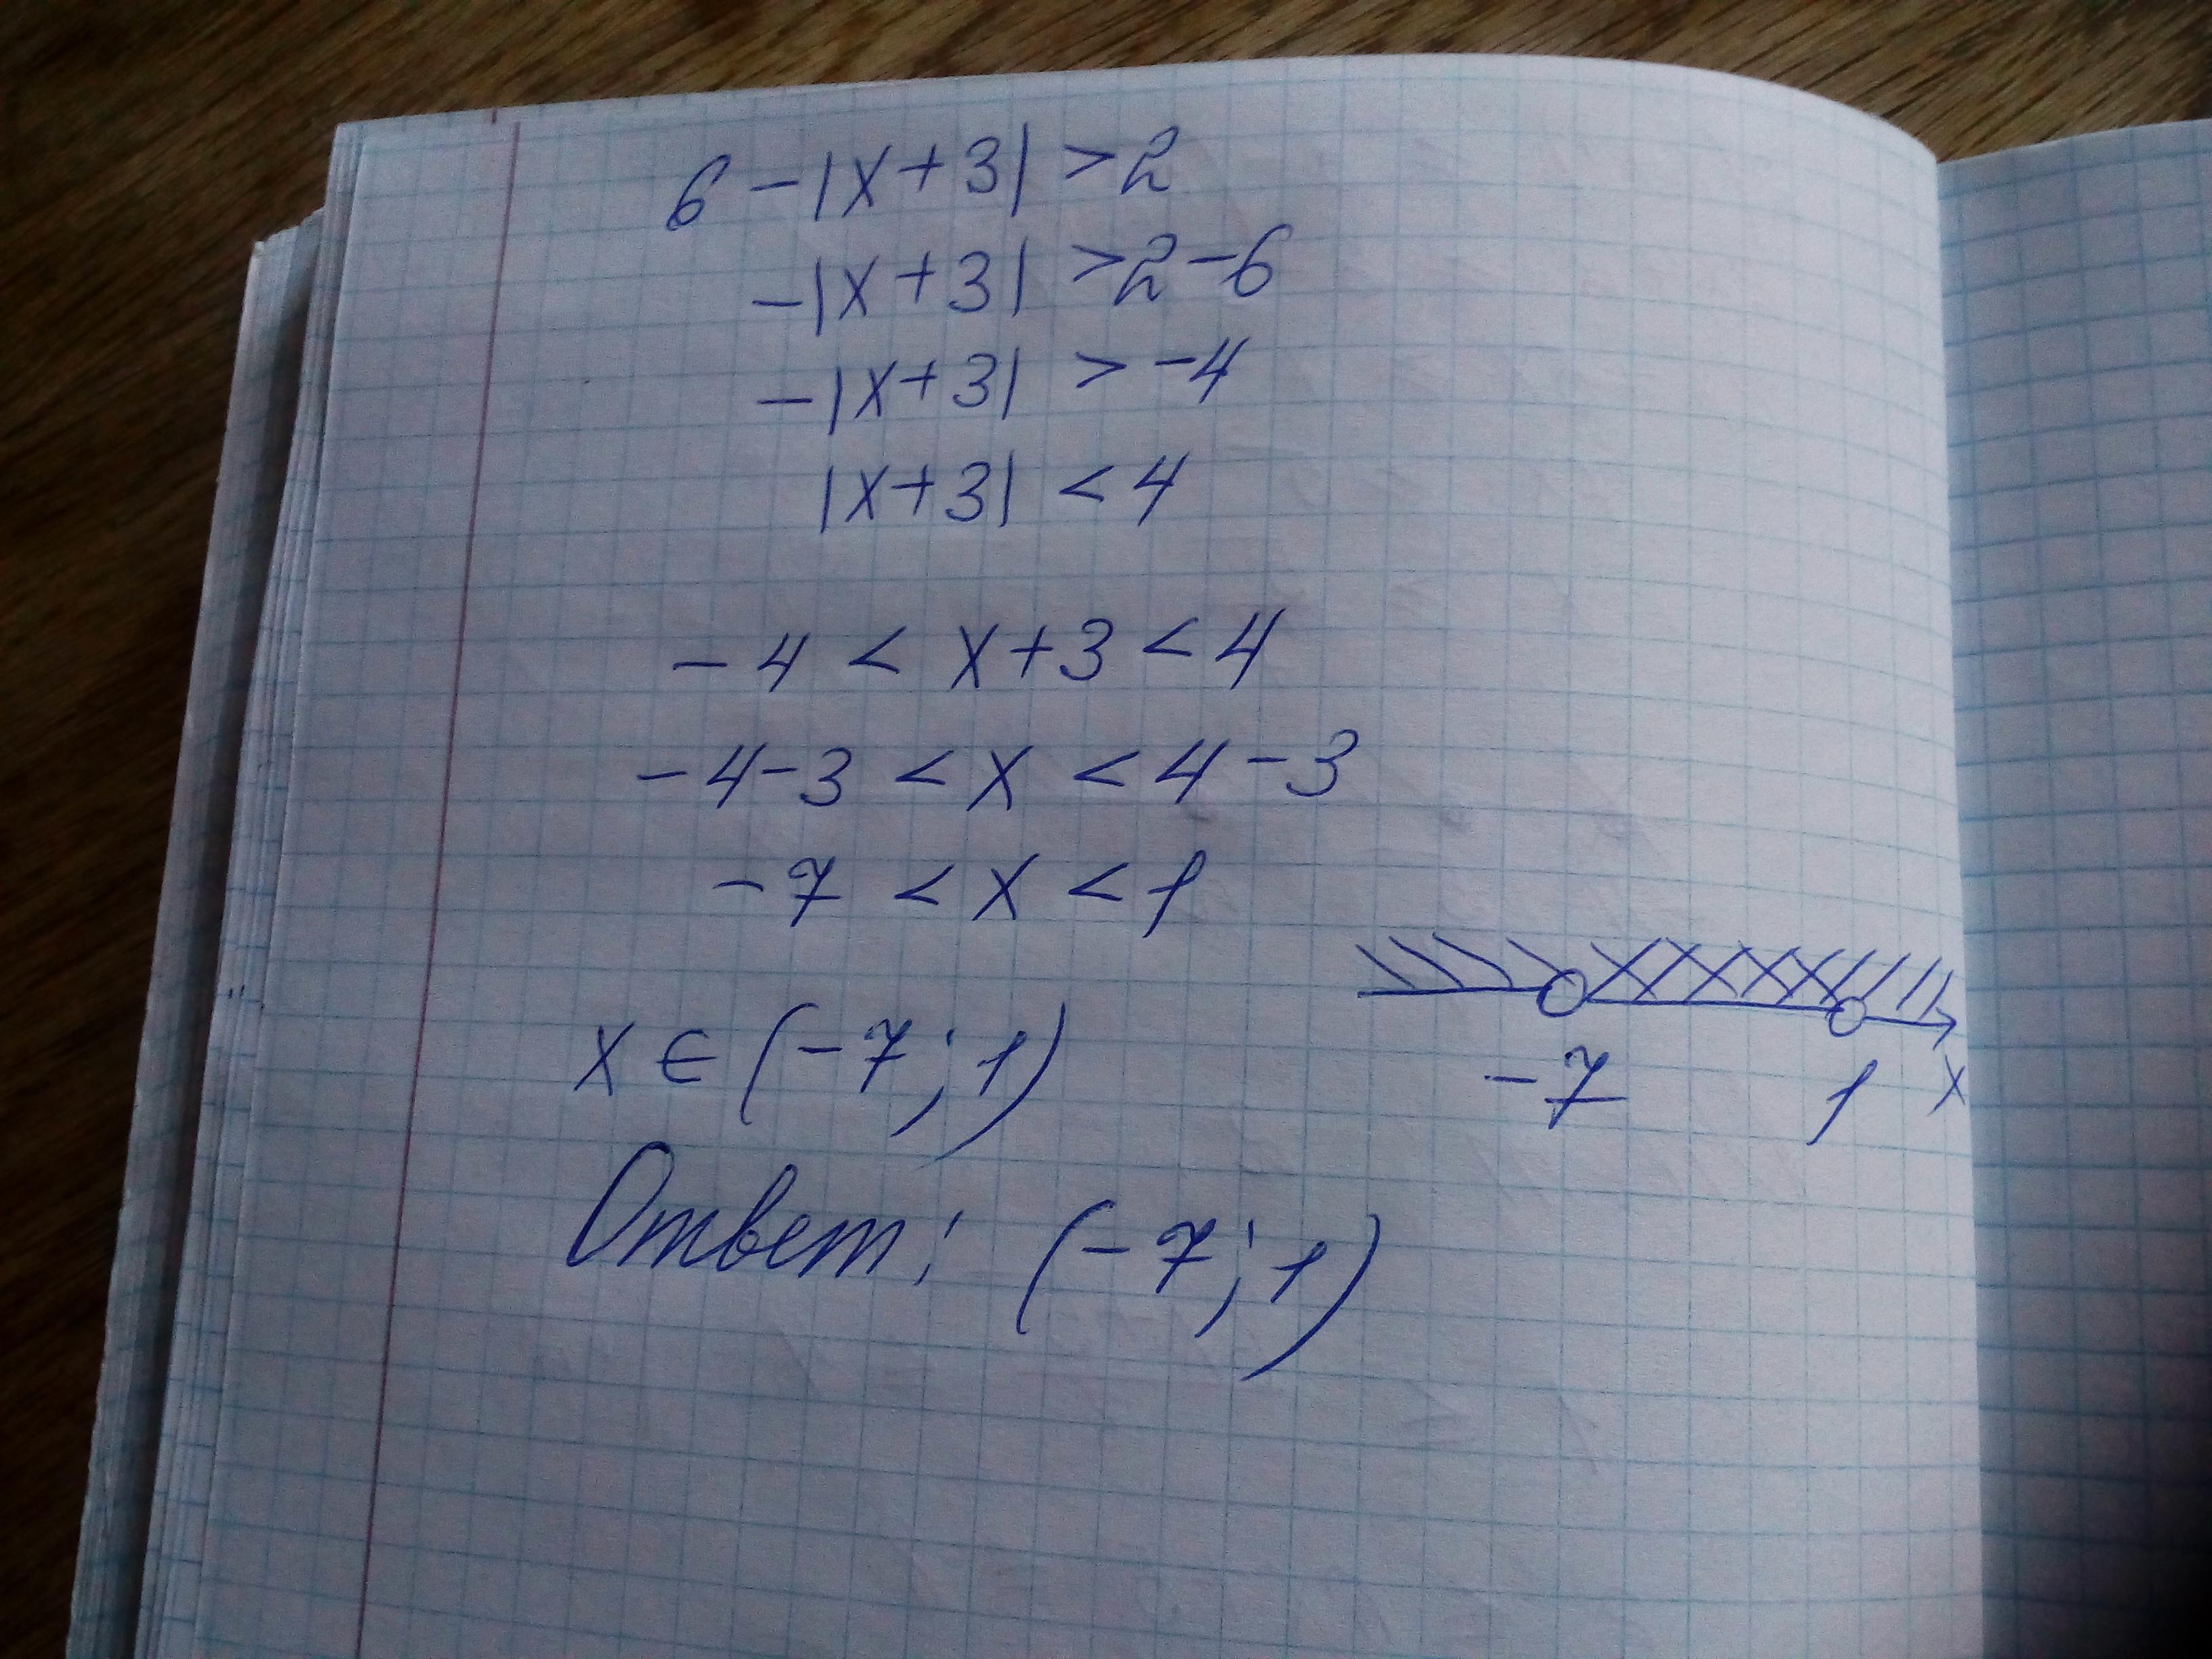 6 - |x + 3| > 2
- |x + 3| > 2 - 6
- |x + 3| > - 4
|x + 3| < 4
- 4 < x + 3 < 4
- 4 - 3 < x < 4 - 3
- 7 < x < 1
x ∈ (- 7; 1)
- 7 1 x
Ответ: (- 7; 1)